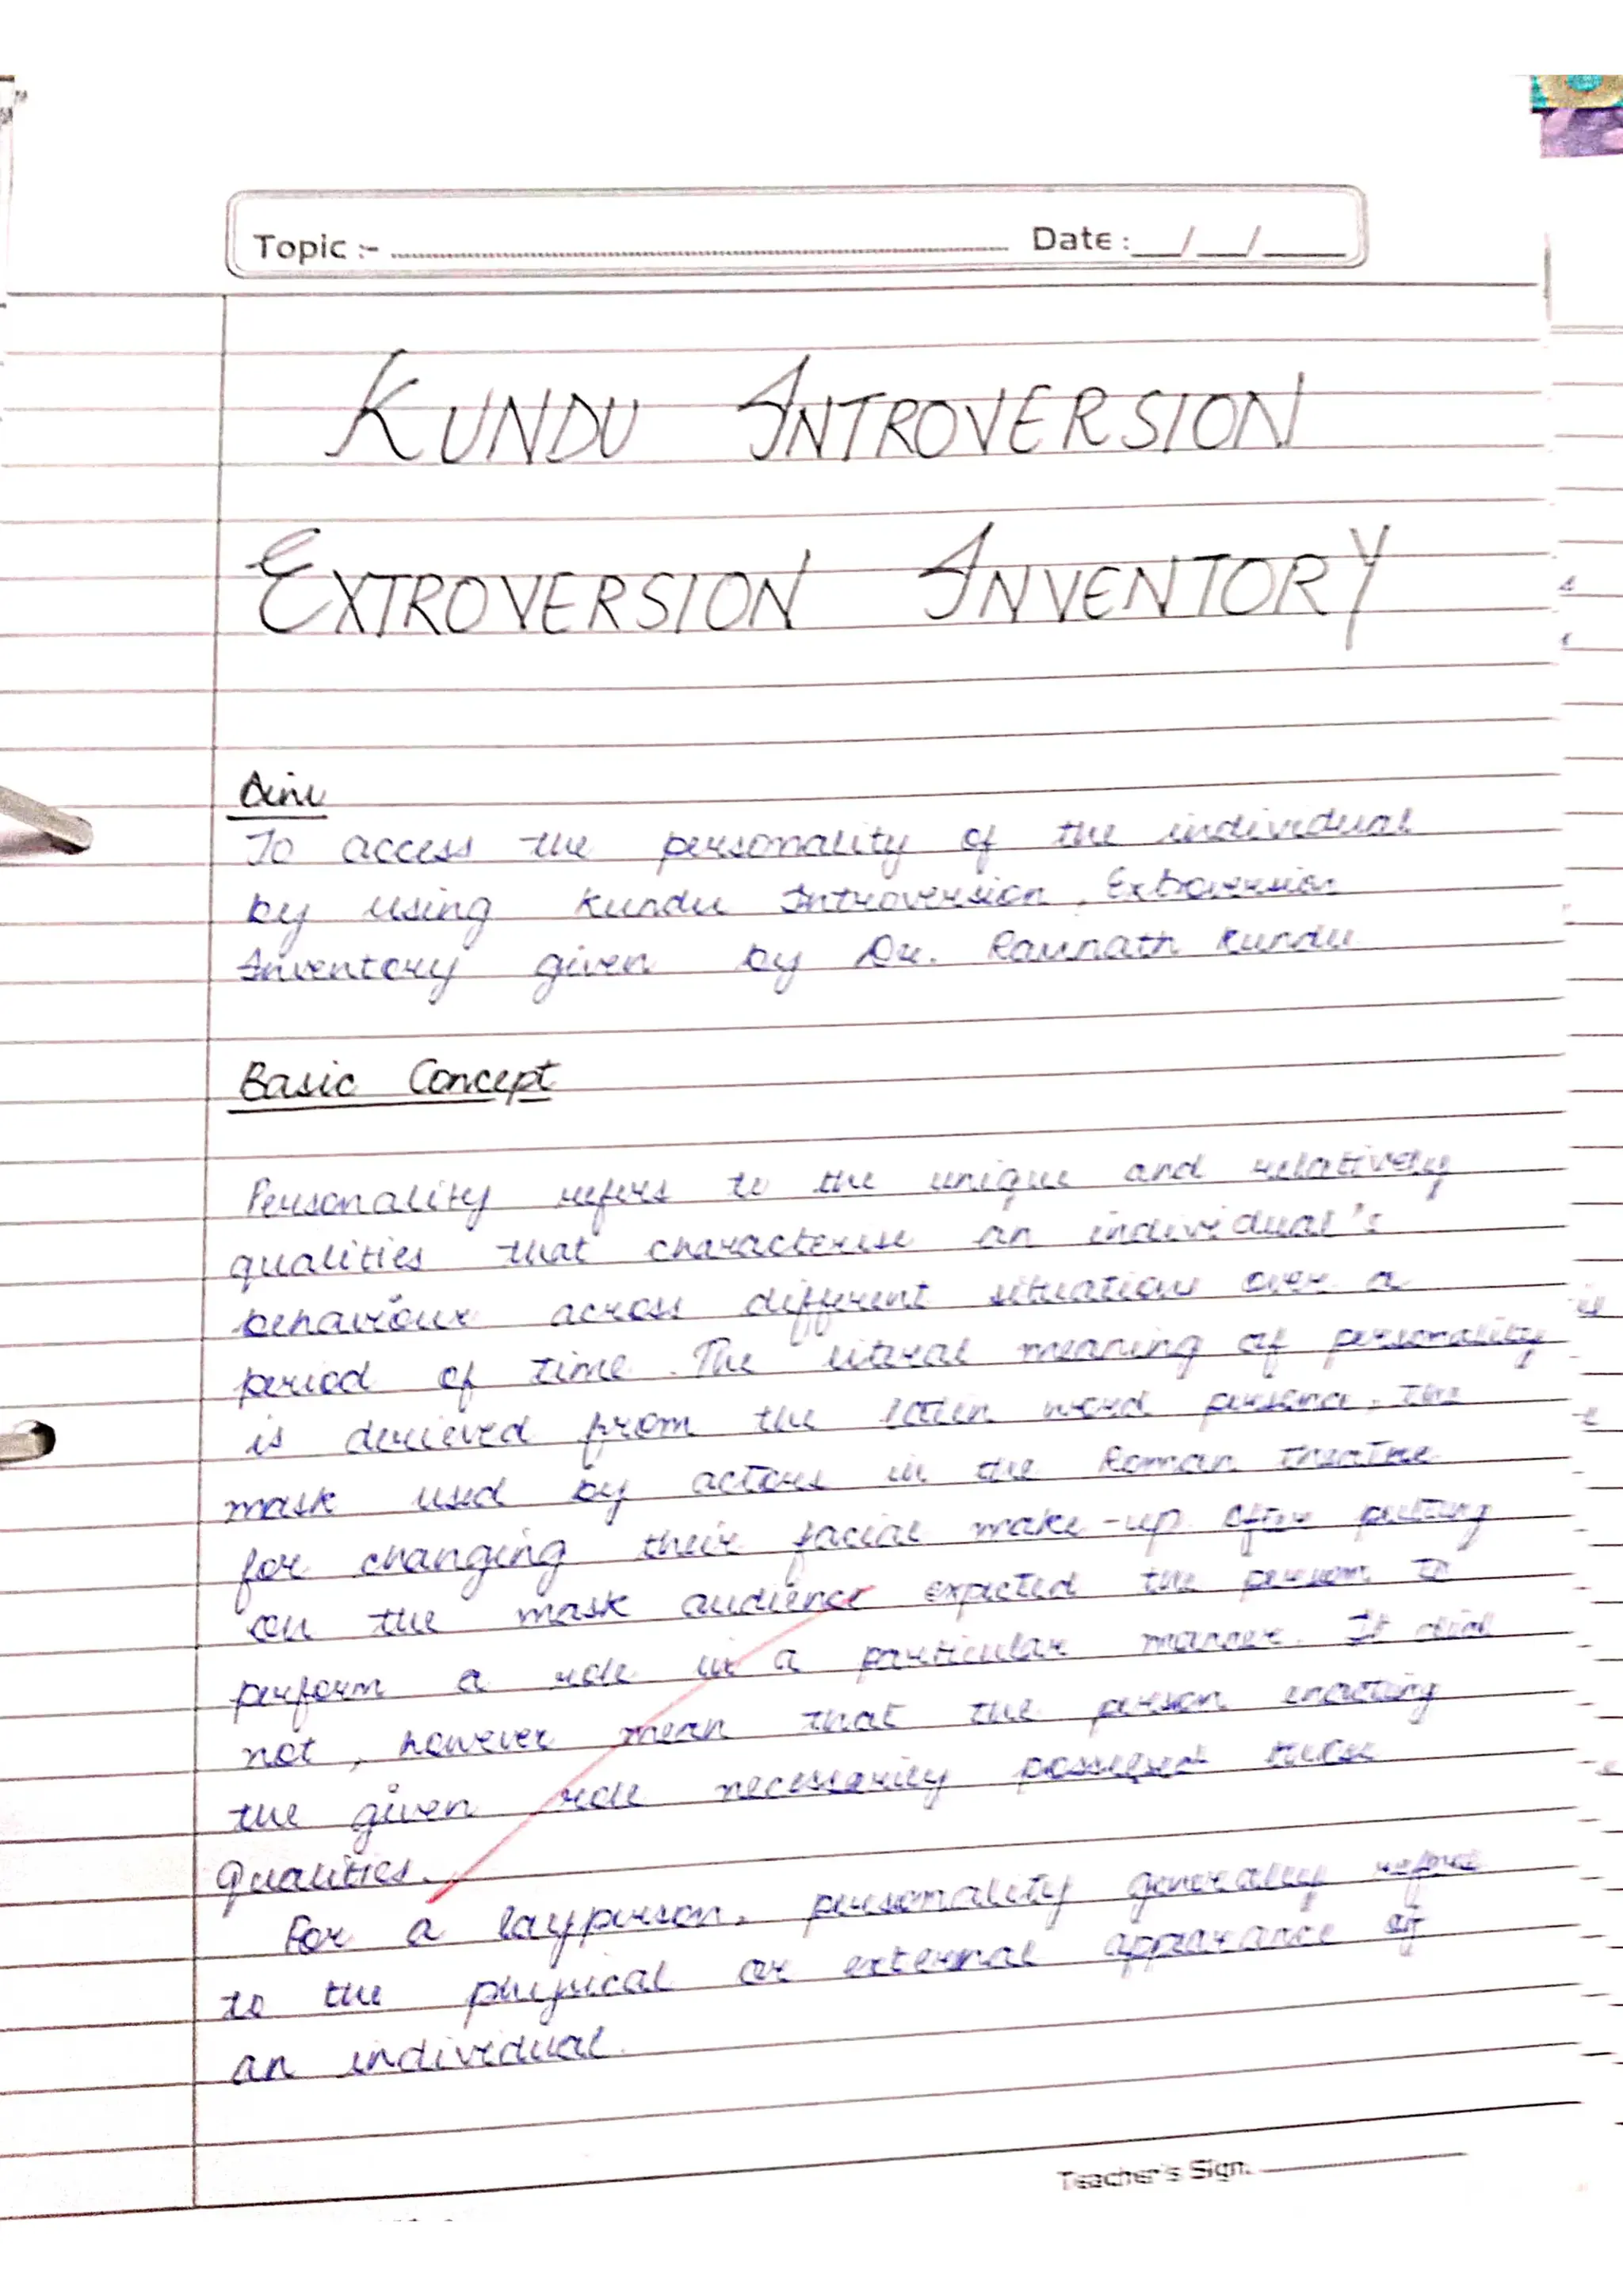 Topic :- Date : __/__/____
KUNDU INTROVERSION
EXTROVERSION INVENTORY
Aim
To access the personality of the individual
by using Kundu Introversion, Extroversion
Inventory given by Dr. Ramnath Kundu
Basic Concept
Personality refers to the unique and relatively
qualities that characterise an individual's
behaviour across different situations over a
period of time. The literal meaning of personality
is derieved from the latin word persona, the
mask used by actors in the Roman theatre
for changing their facial make-up. After putting
on the mask audience expected the person to
perform a role in a particular manner. It did
not, however mean that the person enacting
the given role necessarily possessed those
qualities.
For a layperson, personality generally refers
to the physical or external appearance of
an individual.
Teacher's Sign.